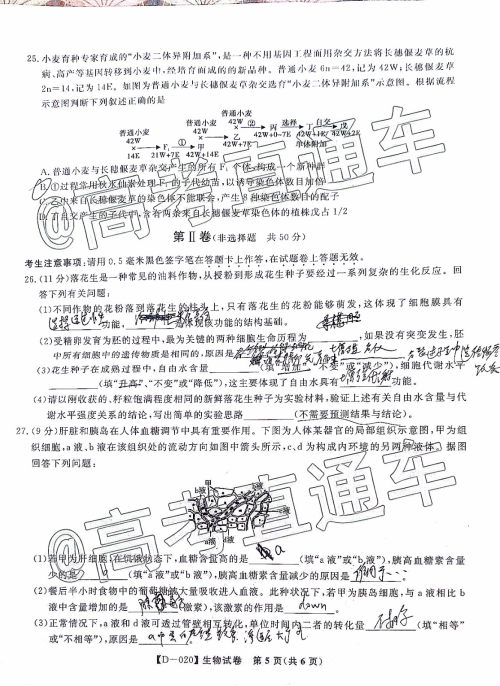 25.小麦育种专家育成的“小麦二体异附加系”,是一种不用基因工程而用杂交方法将长穗偃麦草的抗
病、高产等基因转移到小麦中,经培育而成的的新品种。普通小麦6n=42,记为42W;长穗偃麦草
2n=14,记为14E。如图为普通小麦与长穗偃麦草杂交选育“小麦二体异附加系”示意图。根据流程
示意图判断下列叙述正确的是
普通小麦
普通小麦 42W
普通小麦 42W × ② 丙 选择 丁 自交 戊
42W × 乙 42W+0~7E 42W+1E 42W+2E
× F₁ ① 甲 42W+7E 单体附加
14E 21W+7E 42W+14E
A.普通小麦与长穗偃麦草杂交产生的所有F₁个体,构成一个新种群
B.①过程常用秋水仙素处理F₁的子代幼苗,以诱导染色体数目加倍
C.乙中来自长穗偃麦草的染色体不能联会,产生8种染色体数目的配子
D.丁自交产生的子代中,含有两条来自长穗偃麦草的植株戊占1/2
第Ⅱ卷(非选择题 共50分)
考生注意事项:请用0.5毫米黑色签字笔在答题卡上作答,在试题卷上答题无效。
26.(11分)落花生是一种常见的油料作物,从授粉到形成花生种子要经过一系列复杂的生化反应。回
答下列有关问题:
(1)不同作物的花粉落到落花生的柱头上,只有落花生的花粉能够萌发,这体现了细胞膜具有
功能, 是体现该功能的结构基础。
(2)受精卵发育为胚的过程中,最为关键的两种细胞生命历程为 ,如果没有突变发生,胚
中所有细胞中的遗传物质是相同的,原因是
(3)花生种子在成熟过程中,自由水含量 (填“增加”、“不变”或“减少”),细胞代谢水平
(填“升高”、“不变”或“降低”),这主要体现了自由水具有 功能。
(4)请以刚收获的、籽粒饱满程度相同的新鲜落花生种子为实验材料,验证上述有关自由水含量与代
谢水平强度关系的结论,写出简单的实验思路 (不需要预测结果与结论)。
27.(9分)肝脏和胰岛在人体血糖调节中具有重要作用。下图为人体某器官的局部组织示意图,甲为组
织细胞,a液、b液在该组织处的流动方向如图中箭头所示,c、d为构成内环境的另两种液体。据图
回答下列问题:
b液 c液
a液 d液 甲
(1)若甲为肝细胞,在饥饿状态下,血糖含量高的是 a (填“a液”或“b液”),胰高血糖素含量
少的是 (填“a液”或“b液”),胰高血糖素含量减少的原因是
(2)餐后半小时食物中的葡萄糖被大量吸收进入血液。此种状况下,若甲为胰岛细胞,与a液相比b
液中含量增加的是 (激素),该激素的作用是 down 。
(3)正常情况下,a液和d液可透过管壁相互转化,单位时间内二者的转化量 (填“相等”
或“不相等”),原因是
【D-020】生物试卷 第5页(共6页)
@高考直通车
@高考直通车